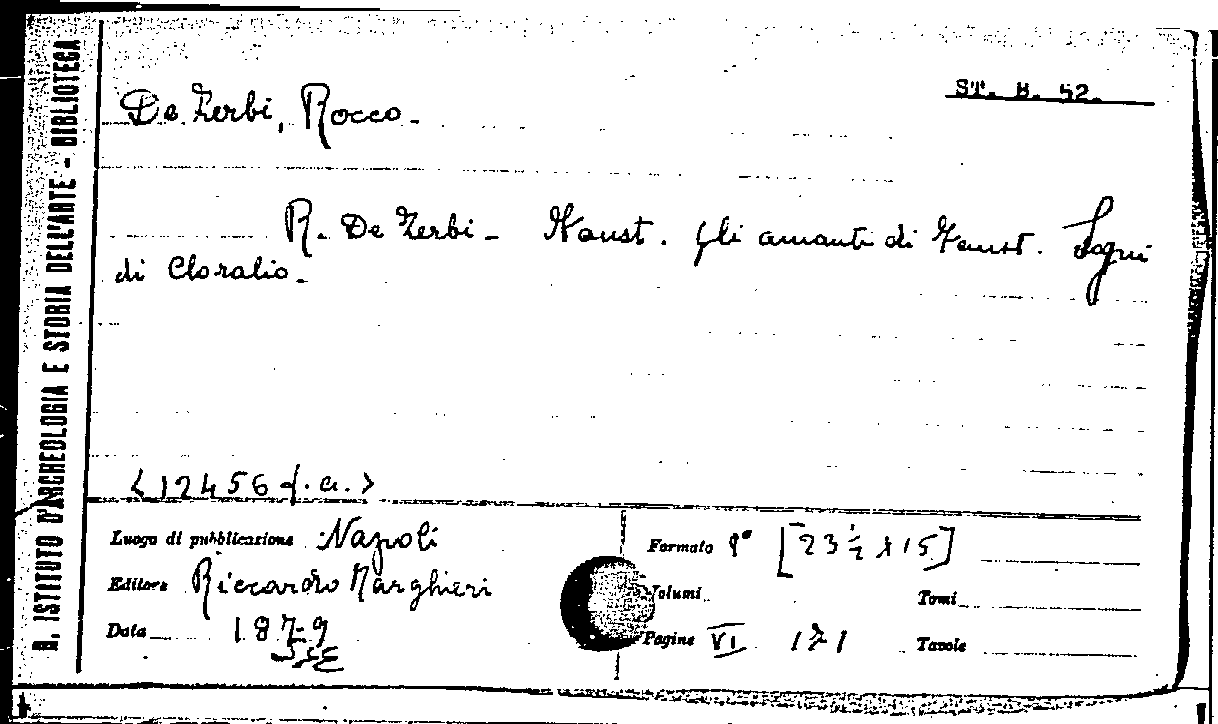 R. ISTITUTO D'ARCHEOLOGIA E STORIA DELL'ARTE - BIBLIOTECA
ST. B. 52.
De Zerbi, Rocco.
R. De Zerbi - Faust. Gli amanti di Faust. Sogni
di Cloralio.
<12456 f.a.>
Luogo di pubblicazione Napoli
Editore Riccardo Marghieri
Data 1879
Formato 8° [23 ½ x 15]
Volumi
Tomi
Pagine VI 171
Tavole